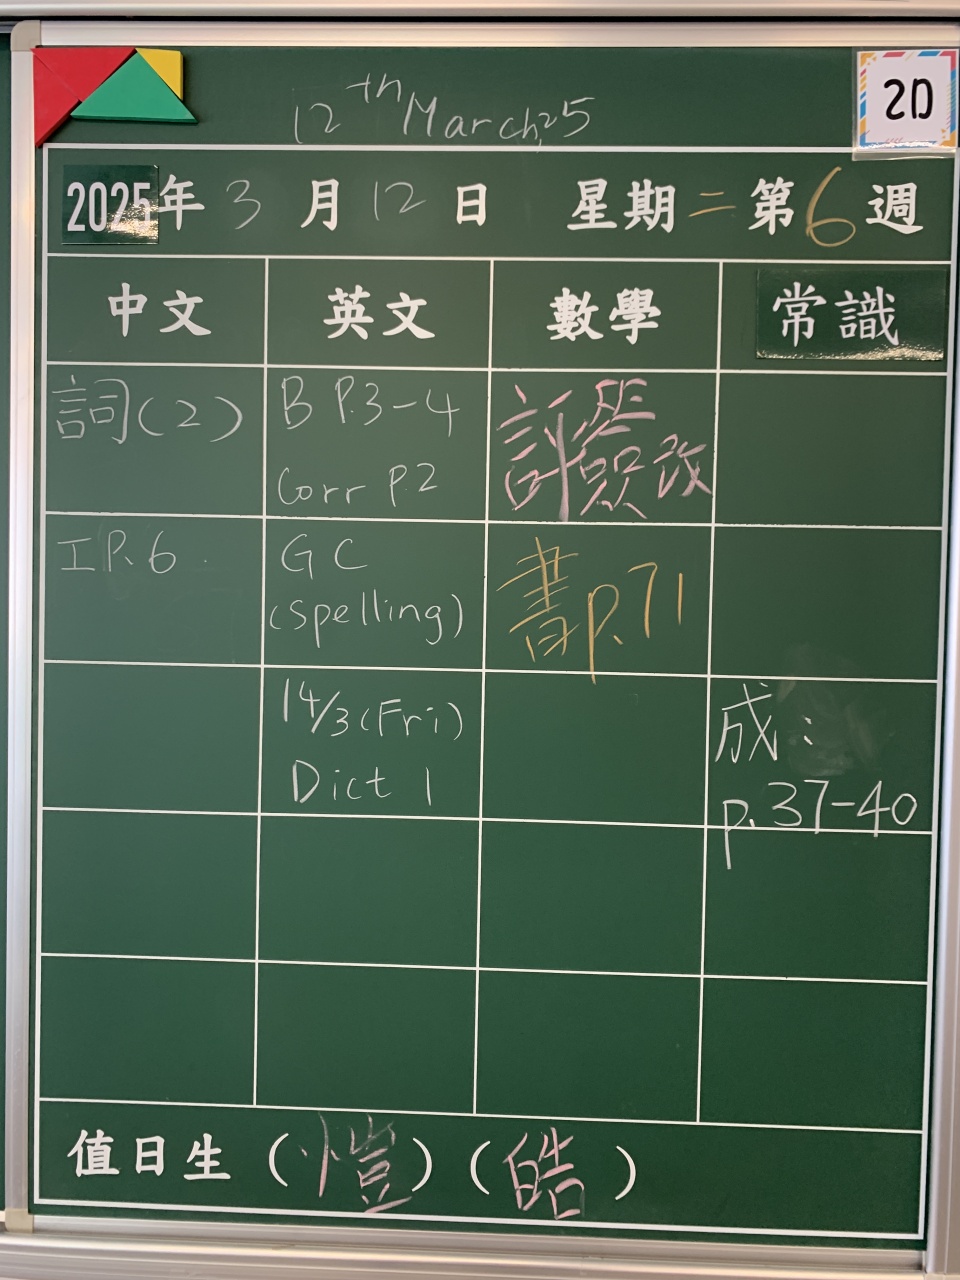 12th March, 25
2D
2025年 3 月 12 日 星期二 第 6 週
中文 英文 數學 常識
詞(2) B P.3-4
Corr P.2
改
工 P.6 GC
(Spelling)
書 p.71
14/3 (Fri)
Dict 1
成:
p.37-40
值日生 (愷) (皓)